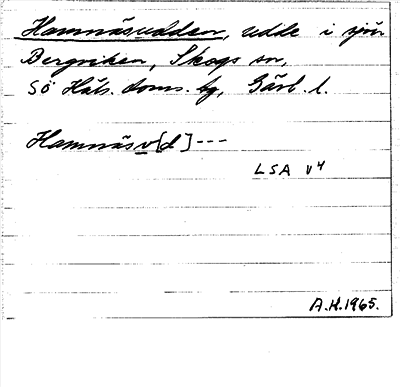 Hamnäsudden, udde i sjön
Bergviken, Skogs sn,
Sö Häls. doms. bg, Gävl. l.
Hamnäsv[d]---
LSA V4
A.H.1965.